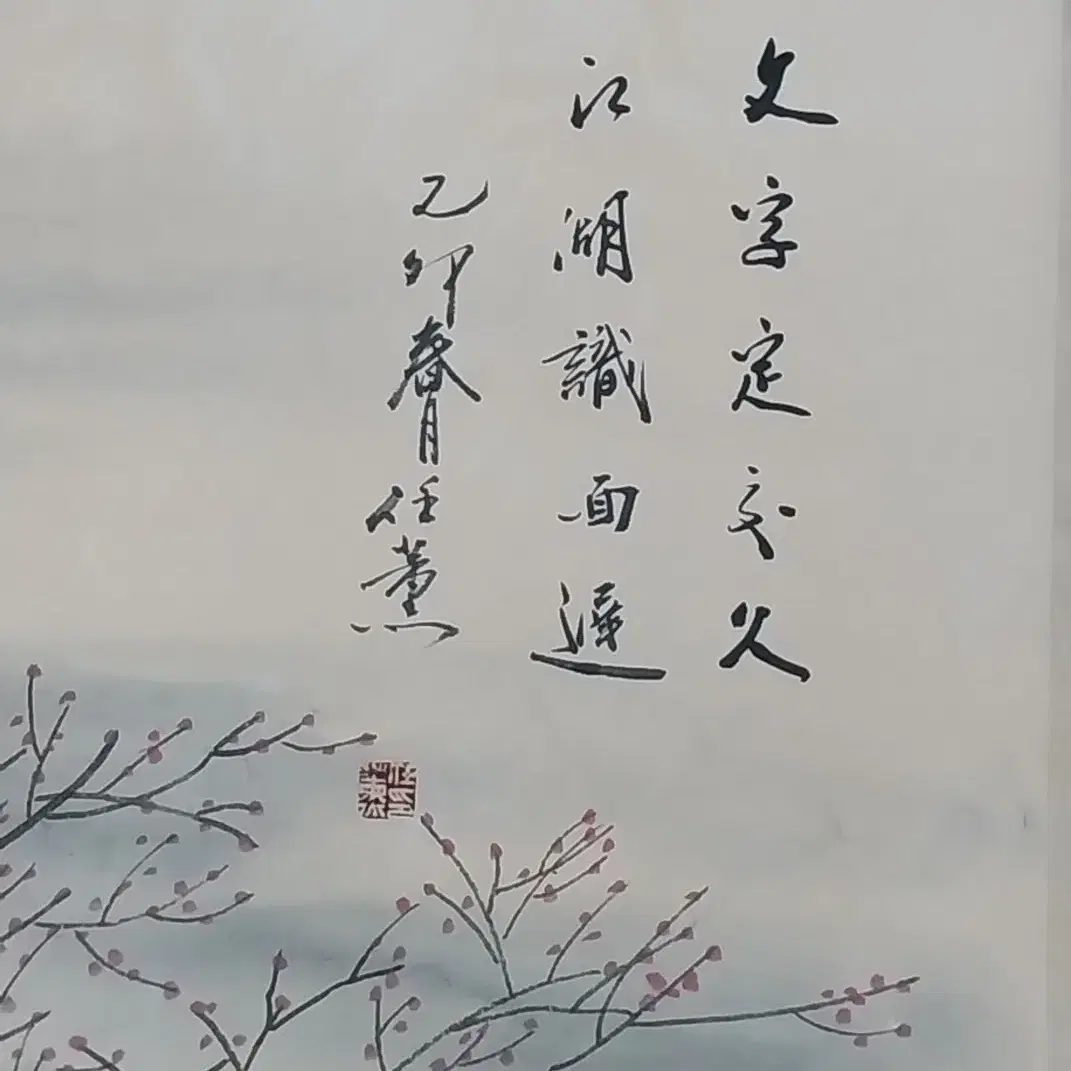 文字定交久
江湖識面遲
乙卯春月任薰